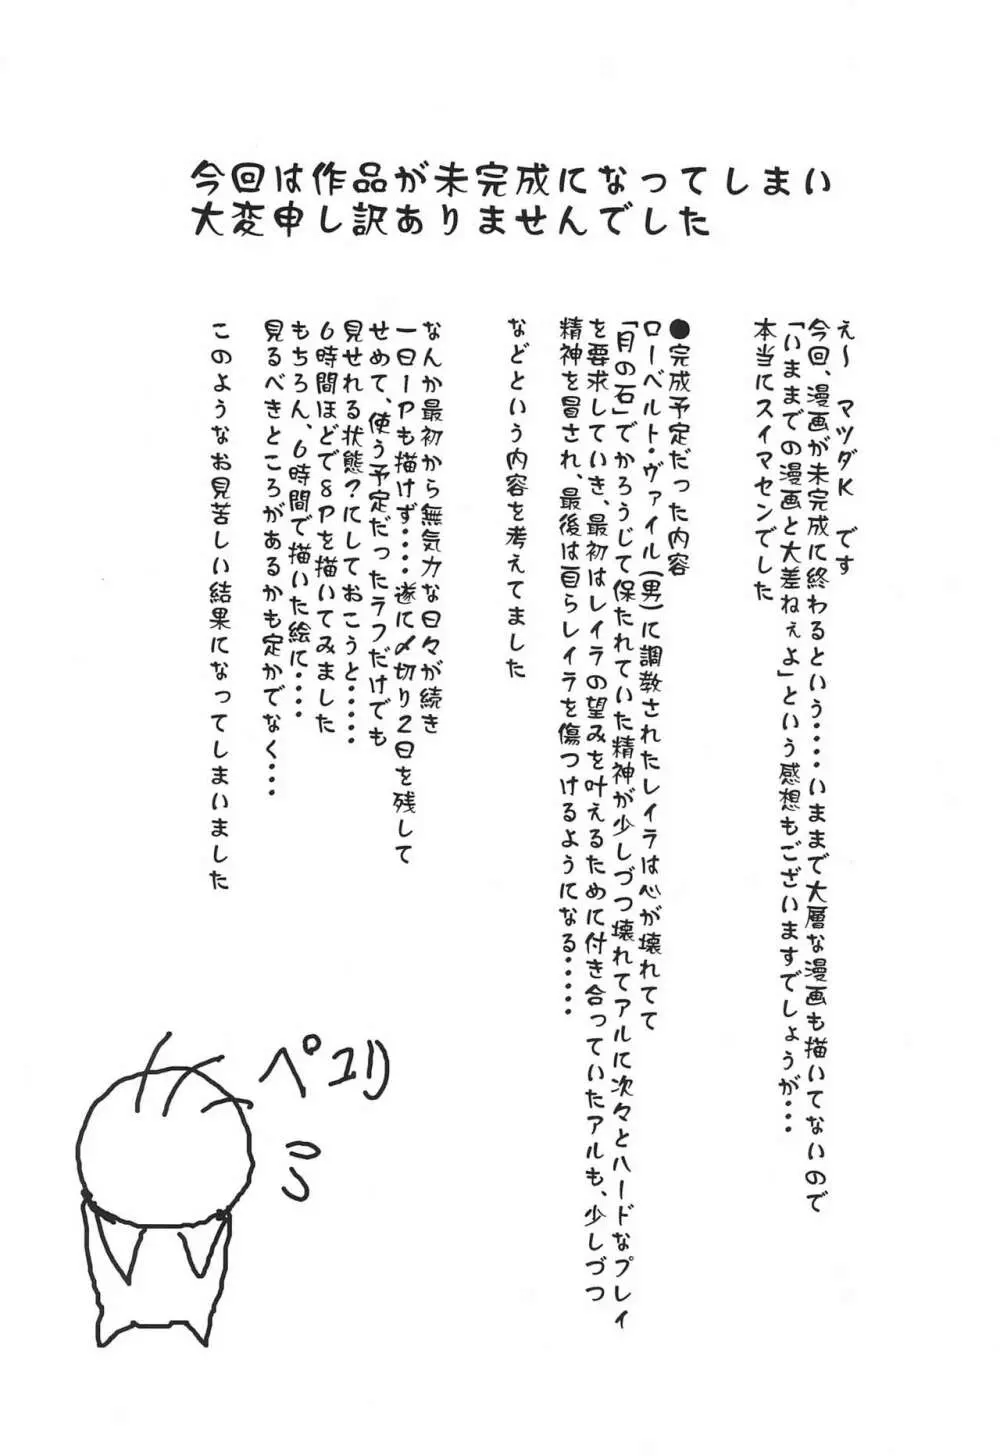 今回は作品が未完成になってしまい
大変申し訳ありませんでした
え～　マツダK　です
今回、漫画が未完成に終わるという・・・・いままで大層な漫画も描いてないので
「いままでの漫画と大差ねぇよ」という感想もございますでしょうが・・・
本当にスイマセンでした
●完成予定だった内容
ローベルト・ヴァイル(男)に調教されたレイラは心が壊れてて
「月の石」でかろうじて保たれていた精神が少しづつ壊れてアルに次々とハードなプレイ
を要求していき、最初はレイラの望みを叶えるために付き合っていたアルも、少しづつ
精神を冒され、最後は自らレイラを傷つけるようになる・・・・・
などという内容を考えてました
なんか最初から無気力な日々が続き
一日一Pも描けず・・・・遂に〆切り2日を残して
せめて、使う予定だったラフだけでも
見せれる状態？にしておこうと・・・・・
6時間ほどで8Pを描いてみました
もちろん、6時間で描いた絵に・・・・
見るべきところがあるかも定かでなく・・・
このようなお見苦しい結果になってしまいました
ペコリ